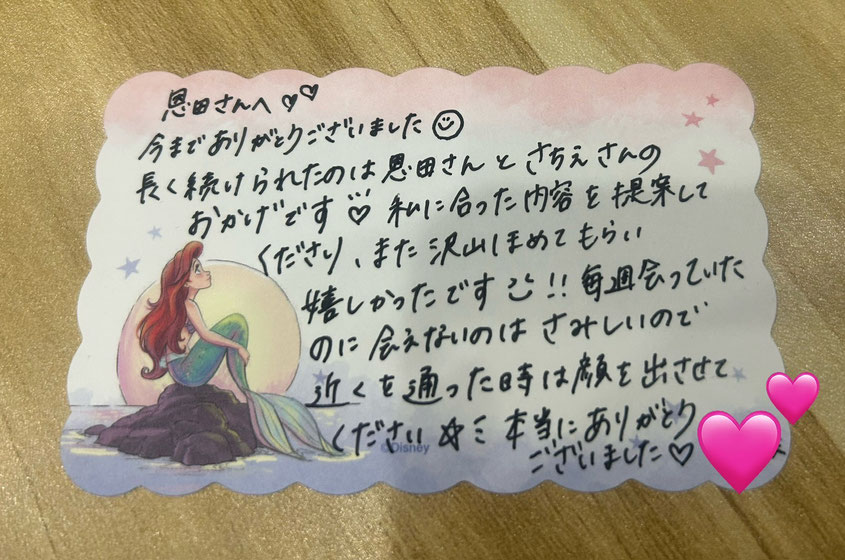 恩田さんへ♡♡
今までありがとうございました☺
長く続けられたのは恩田さんとさちえさんの
おかげです♡ 私に合った内容を提案して
くださり、また沢山ほめてもらい
嬉しかったです!! 毎週会っていた
のに会えないのはさみしいので
近くを通った時は顔を出させて
ください☆ミ 本当にありがとう
ございました♡
©Disney